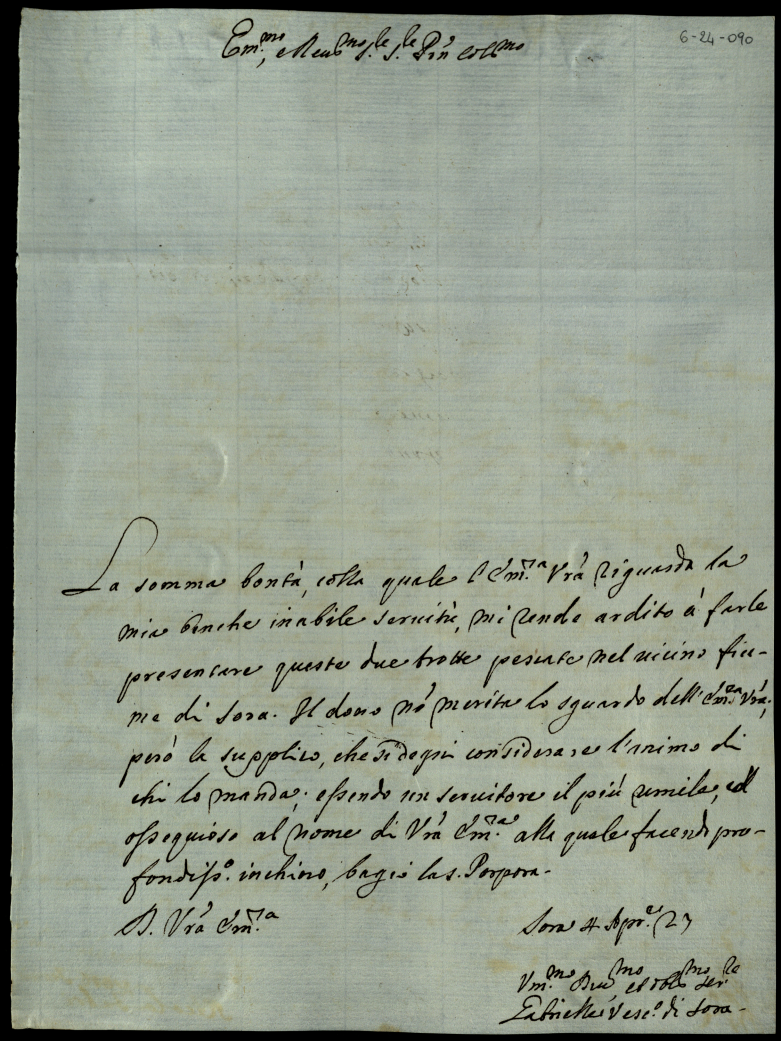 6-24-090
Em.mo, e Reu.mo S.re S.re P͠rn Col.mo
La somma bontà, colla quale l'Em.a Vrā riguarda la
mia benche inabile seruitù, mi rende ardito à farle
presentare queste due trotte pescate nel uicino fiu-
me di Sora. Il dono nō merita lo sguardo dell'Em.a Vrā,
però la supplico, che si degni considerare l'animo di
chi lo manda; essendo un seruitore il più umile, ed
ossequioso al nome di Vrā Em.a alla quale facendo pro-
fondiss.o inchino, bagio la s. Porpora.
D. Vrā Em.a
Sora 4 Apr.e 27
Vm.mo Deu.mo et obb.mo Ser.re
Gabrielle Vesc.o di Sora.